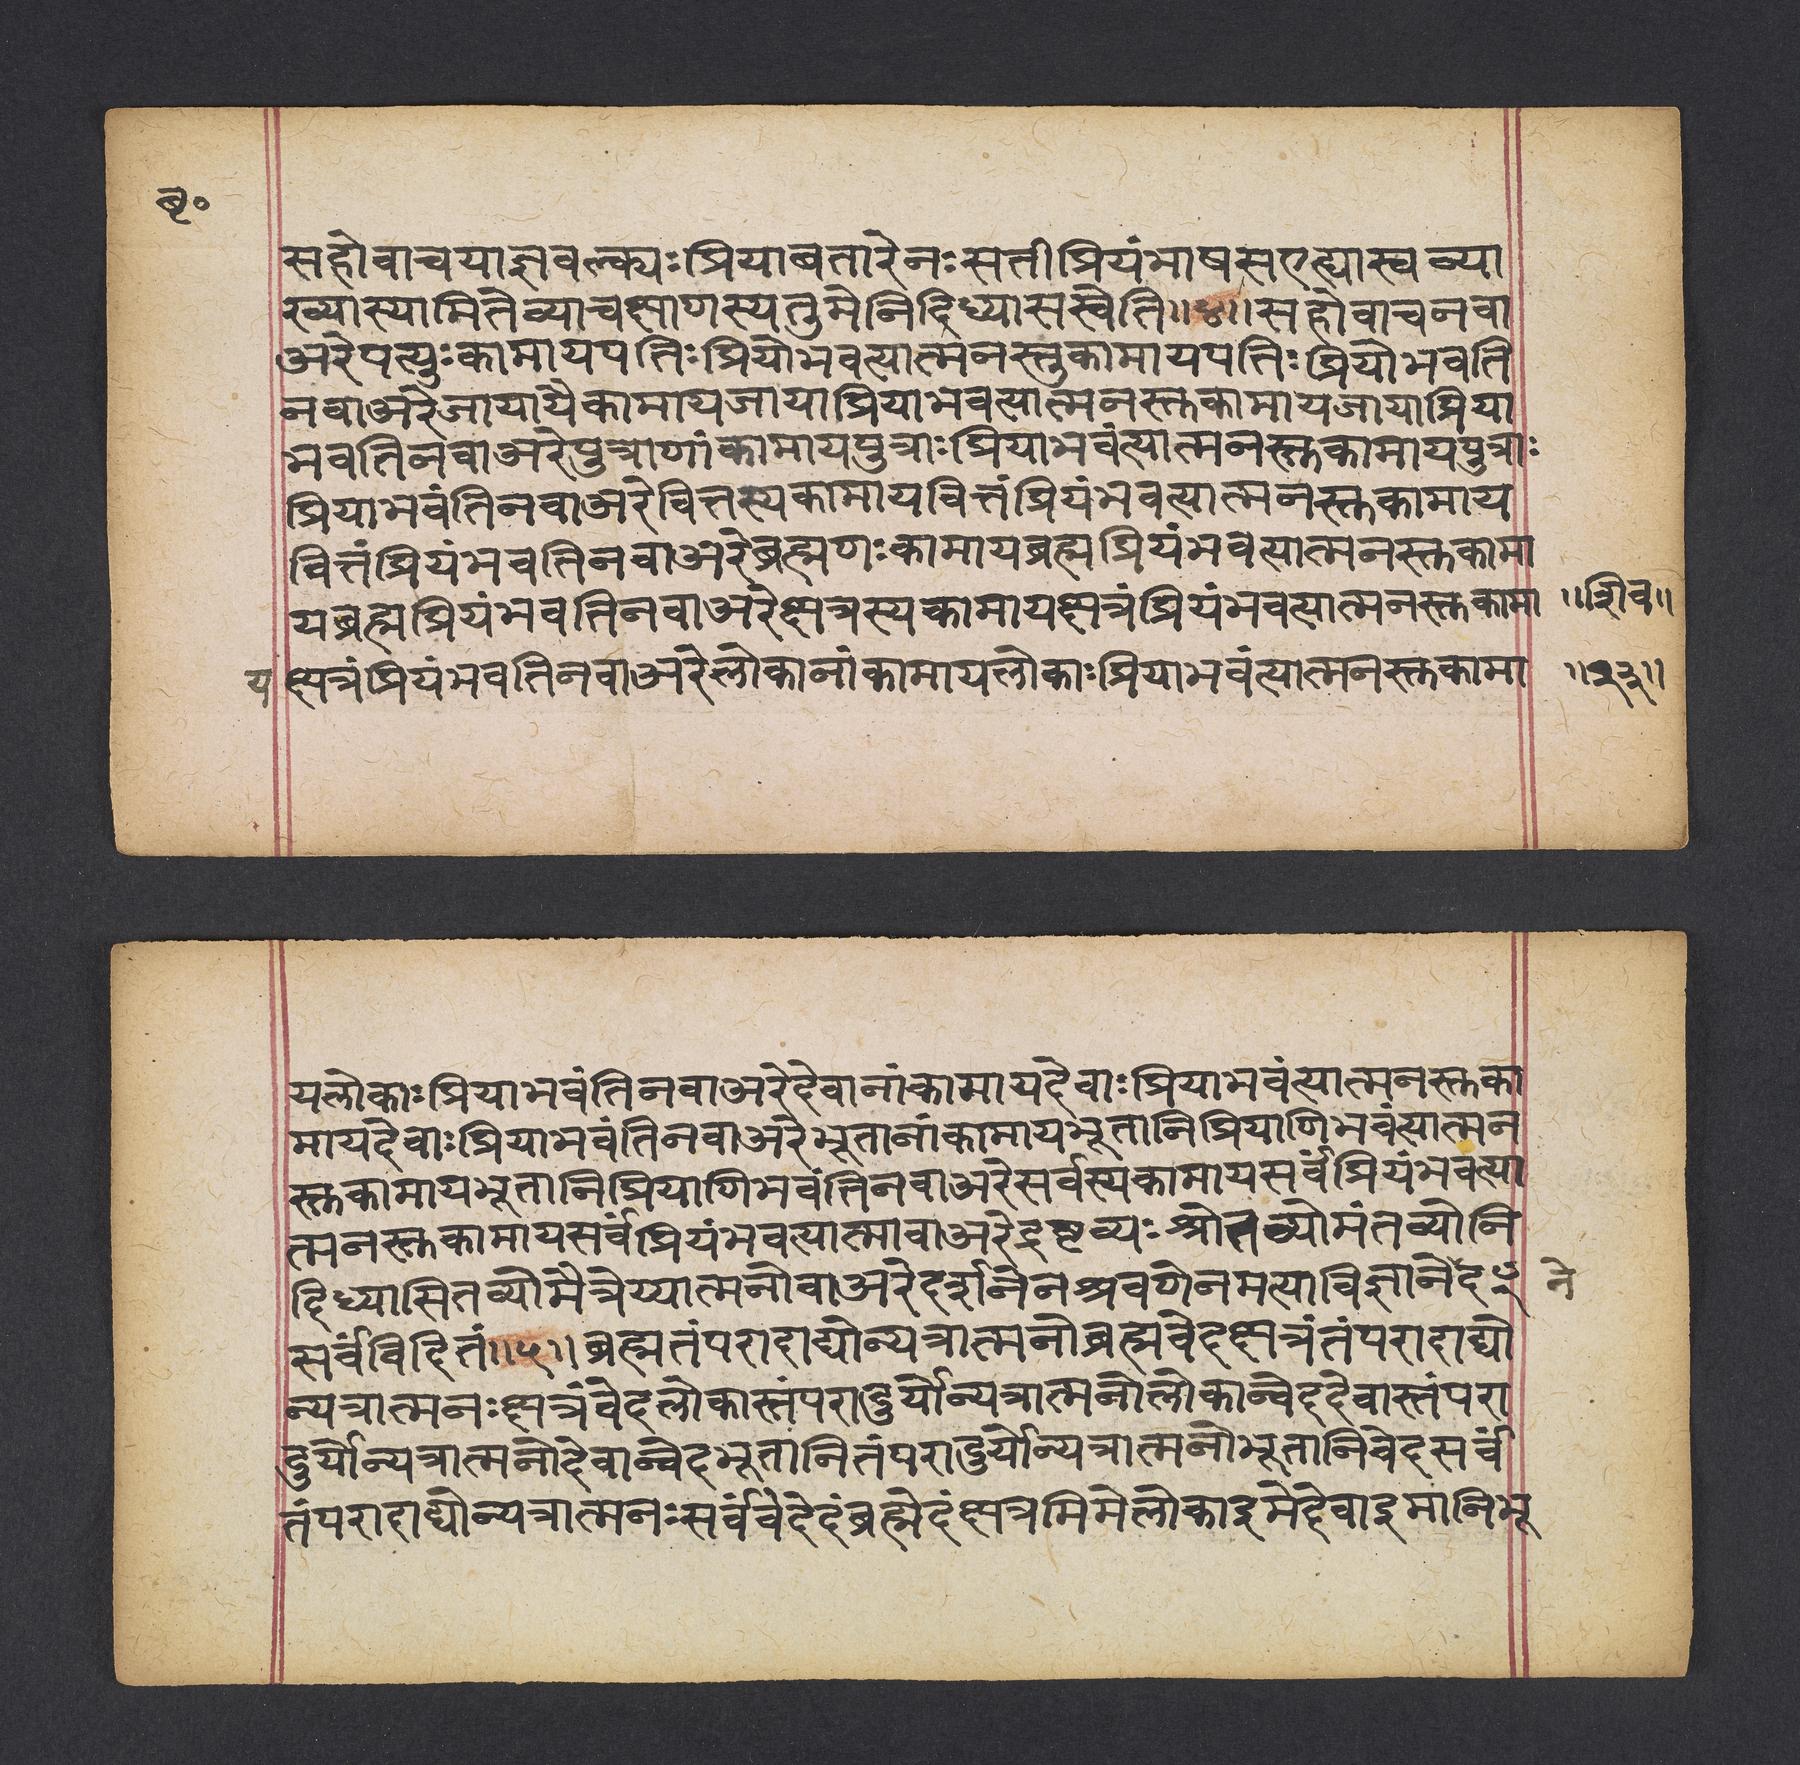 बृ०
सहोवाचयाज्ञवल्क्यःप्रियाबतारेनःसतीप्रियंभाषसएह्यास्वव्या
ख्यास्यामितेव्याचक्षाणस्यतुमेनिदिध्यासस्वेति॥४॥सहोवाचनवा
अरेपत्युःकामायपतिःप्रियोभवत्यात्मनस्तुकामायपतिःप्रियोभवति
नवाअरेजायायैकामायजायाप्रियाभवत्यात्मनस्तुकामायजायाप्रिया
भवतिनवाअरेपुत्राणांकामायपुत्राःप्रियाभवंत्यात्मनस्तुकामायपुत्राः
प्रियाभवंतिनवाअरेवित्तस्यकामायवित्तंप्रियंभवत्यात्मनस्तुकामाय
वित्तंप्रियंभवतिनवाअरेब्रह्मणःकामायब्रह्मप्रियंभवत्यात्मनस्तुकामा
यब्रह्मप्रियंभवतिनवाअरेक्षत्रस्यकामायक्षत्रंप्रियंभवत्यात्मनस्तुकामा ॥शिव॥
य क्षत्रंप्रियंभवतिनवाअरेलोकानांकामायलोकाःप्रियाभवंत्यात्मनस्तुकामा ॥२३॥
यलोकाःप्रियाभवंतिनवाअरेदेवानांकामायदेवाःप्रियाभवंत्यात्मनस्तुका
मायदेवाःप्रियाभवंतिनवाअरेभूतानांकामायभूतानिप्रियाणिभवंत्यात्मन
स्तुकामायभूतानिप्रियाणिभवंतिनवाअरेसर्वस्यकामायसर्वंप्रियंभवत्या
त्मनस्तुकामायसर्वंप्रियंभवत्यात्मावाअरेद्रष्टव्यःश्रोतव्योमंतव्योनि
दिध्यासितव्योमैत्रेय्यात्मनोवाअरेदर्शनेनश्रवणेनमत्याविज्ञानेदꣳ ने
सर्वंविदितं॥५॥ब्रह्मतंपरादाद्योन्यत्रात्मनोब्रह्मवेदक्षत्रंतंपरादाद्यो
न्यत्रात्मनःक्षत्रंवेदलोकास्तंपरादुर्योन्यत्रात्मनोलोकान्वेददेवास्तंपरा
दुर्योन्यत्रात्मनोदेवान्वेदभूतानितंपरादुर्योन्यत्रात्मनोभूतानिवेदसर्वं
तंपरादाद्योन्यत्रात्मनःसर्वंवेदेदंब्रह्मेदंक्षत्रमिमेलोकाइमेदेवाइमानिभू